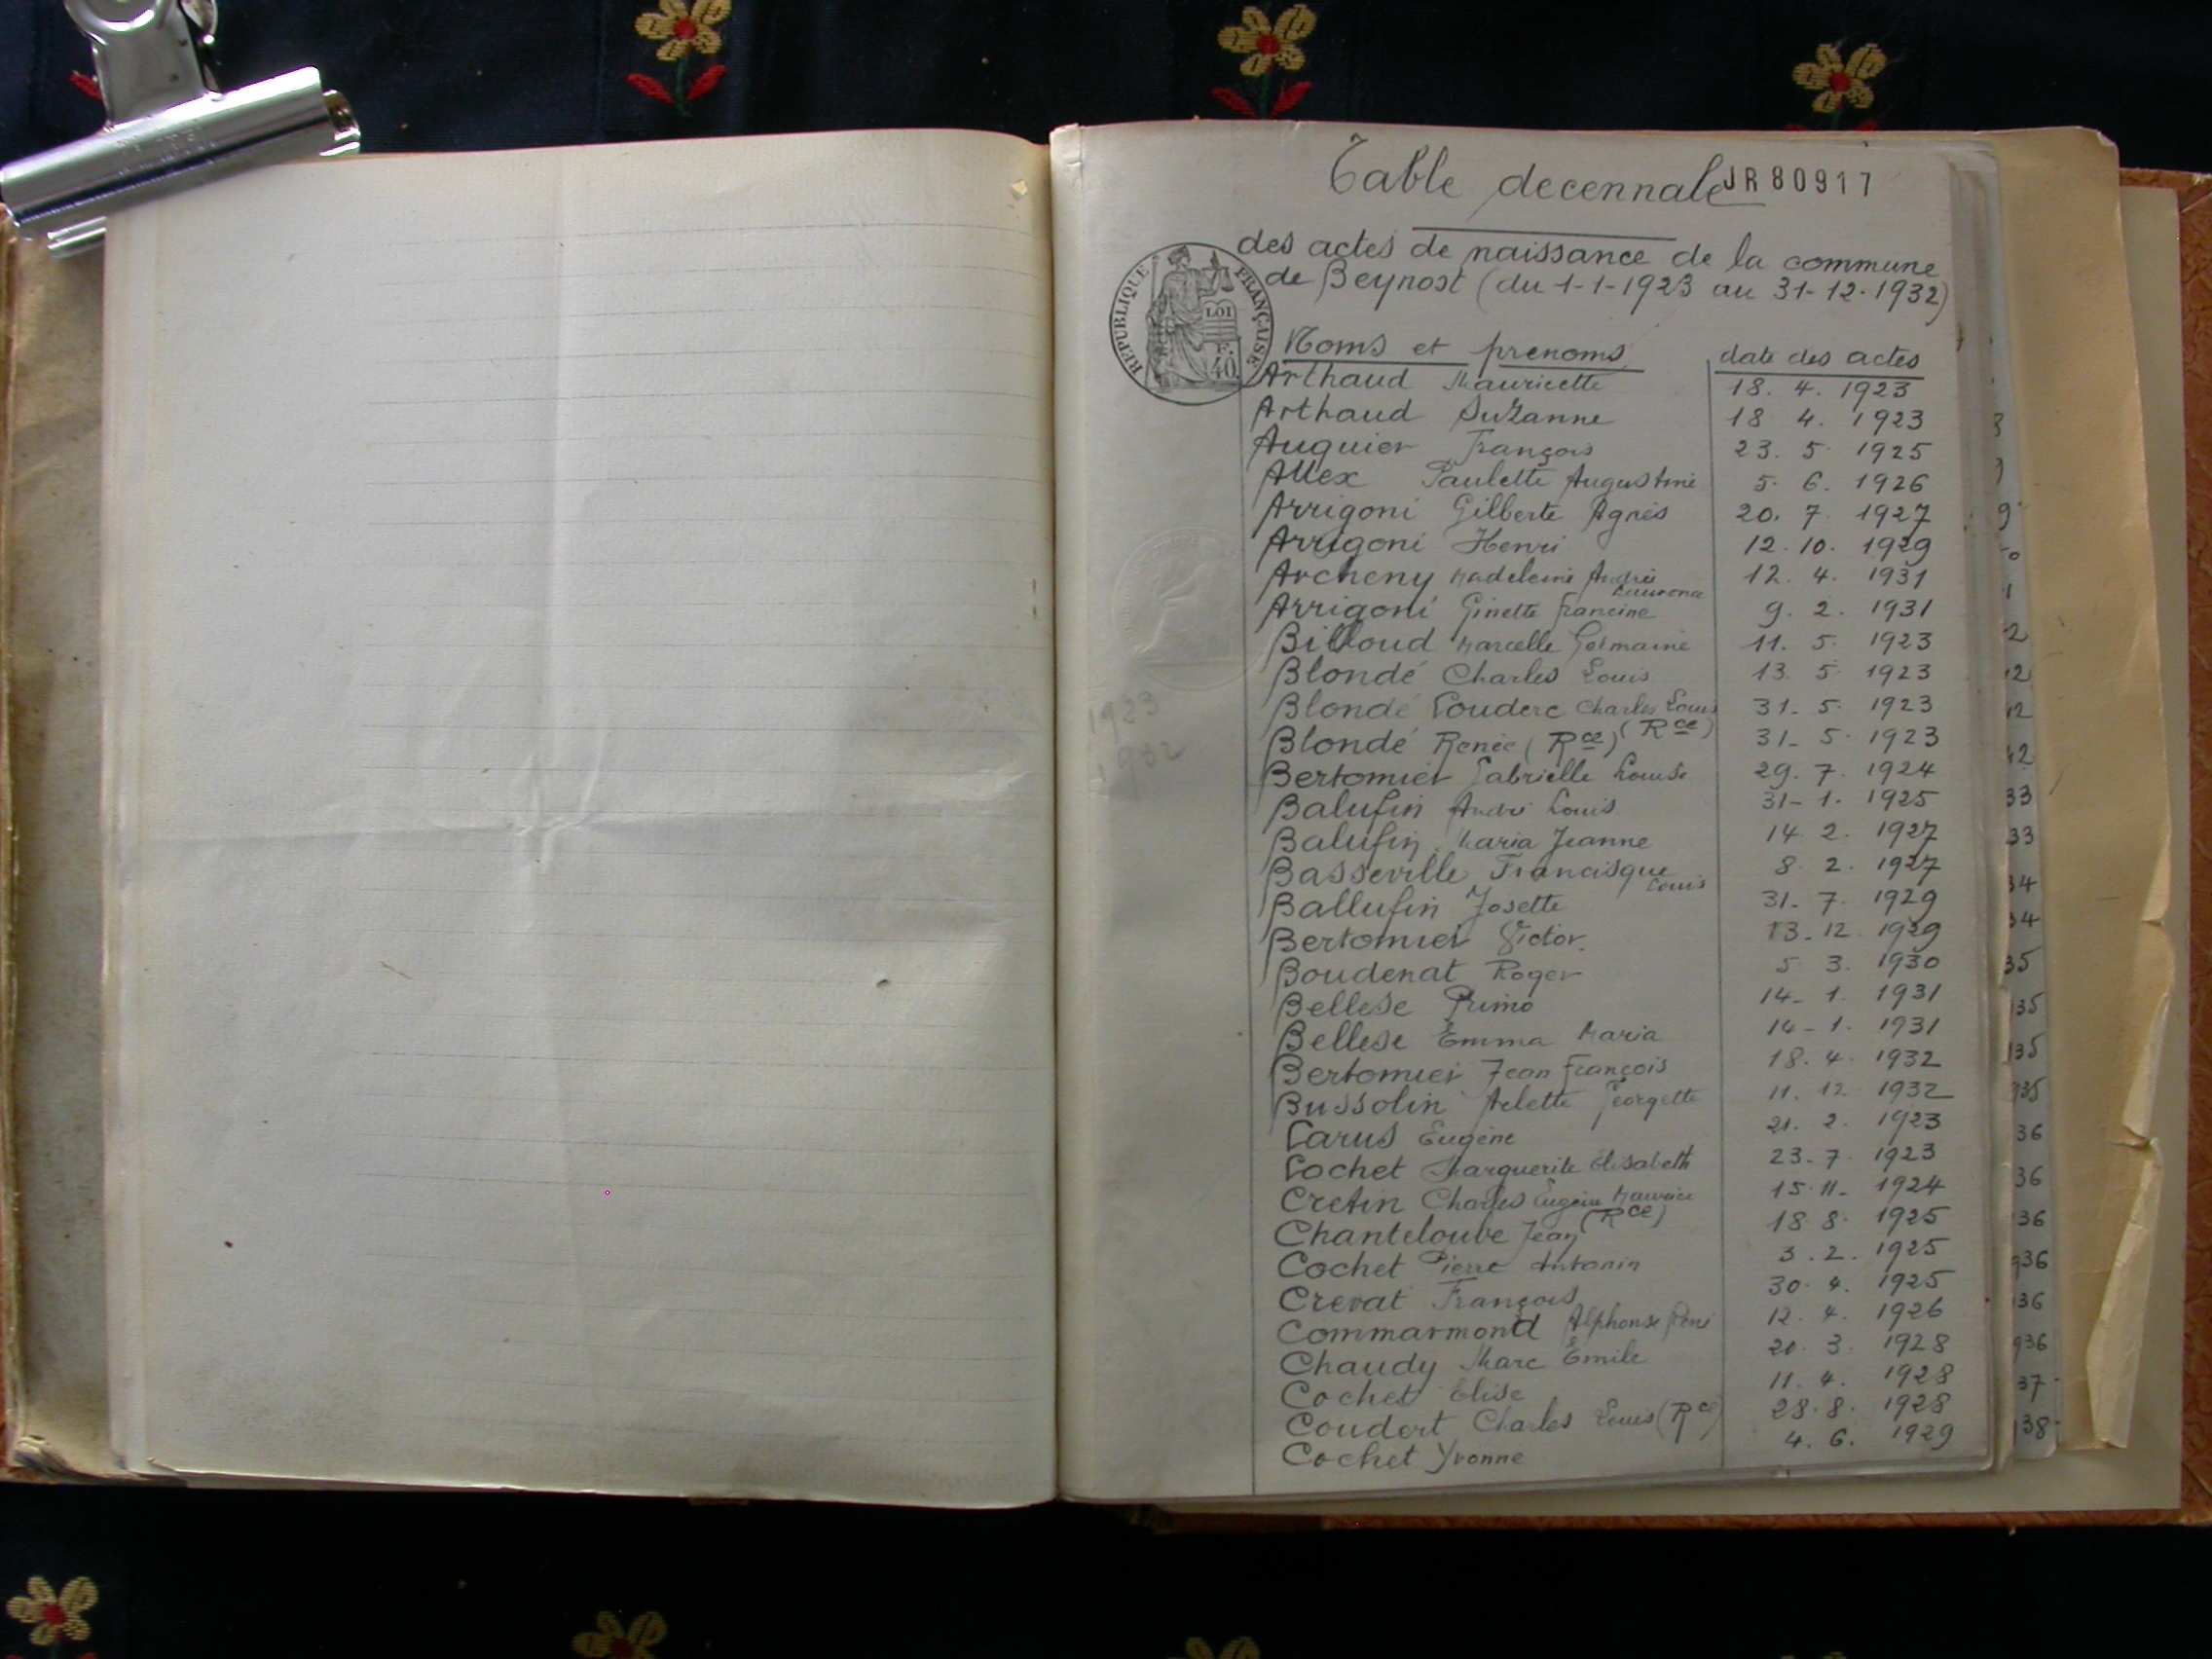 Table decennale JR 80917
des actes de naissance de la commune
de Beynost (du 1-1-1923 au 31-12-1932)
REPUBLIQUE FRANÇAISE
LOI
F.
40
Noms et prenoms date des actes
Arthaud Mauricette 18. 4. 1923
Arthaud Suzanne 18 4. 1923
Auquier François 23. 5. 1925
Allex Paulette Augustine 5. 6. 1926
Arrigoni Gilberte Agnès 20. 7. 1927
Arrigoni Henri 12. 10. 1929
Archeny Madeleine 12. 4. 1931
Arrigoni Ginette Francine 9. 2. 1931
Billoud Marcelle Germaine 11. 5. 1923
Blondé Charles Louis 13. 5. 1923
Blondé Couderc Charles Louis 31- 5. 1923
(Rce)
Blondé Renée (Rce) 31- 5. 1923
Bertomier Gabrielle Louise 29. 7. 1924
Balufin André Louis 31- 1. 1925
Balufin Maria Jeanne 14. 2. 1927
Basseville Francisque 8. 2. 1927
Louis
Ballufin Josette 31- 7. 1929
Bertomier Victor. 13-12. 1929
Boudenat Roger 5 3. 1930
Bellese Primo 14- 1. 1931
Bellese Emma Maria 14-1. 1931
Bertomier Jean François 18. 4. 1932
Bussolin Arlette Georgette 11. 12 1932
Carus Eugène 21. 2. 1923
Cochet Marguerite Elisabeth 23-7. 1923
Cretin Charles Eugène Maurice 15. 11- 1924
(Rce)
Chantelouve Jean 18 8. 1925
Cochet Pierre Antonin 3. 2. 1925
Crevat François 30. 4. 1925
Commarmond Alphonse René 12. 4. 1926
Chaudy Marc Emile 20. 3. 1928
Cochet Elise 11. 4. 1928
Coudert Charles Louis (Rce) 28. 8. 1928
Cochet Yvonne 4. 6. 1929
1923
1932